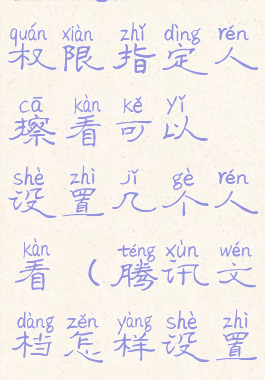 quán xiàn zhǐ dìng rén
权限指定人
cā kàn kě yǐ
擦看可以
shè zhì jǐ gè rén
设置几个人
kàn téng xùn wén
看（腾讯文
dàng zěn yàng shè zhì
档怎样设置